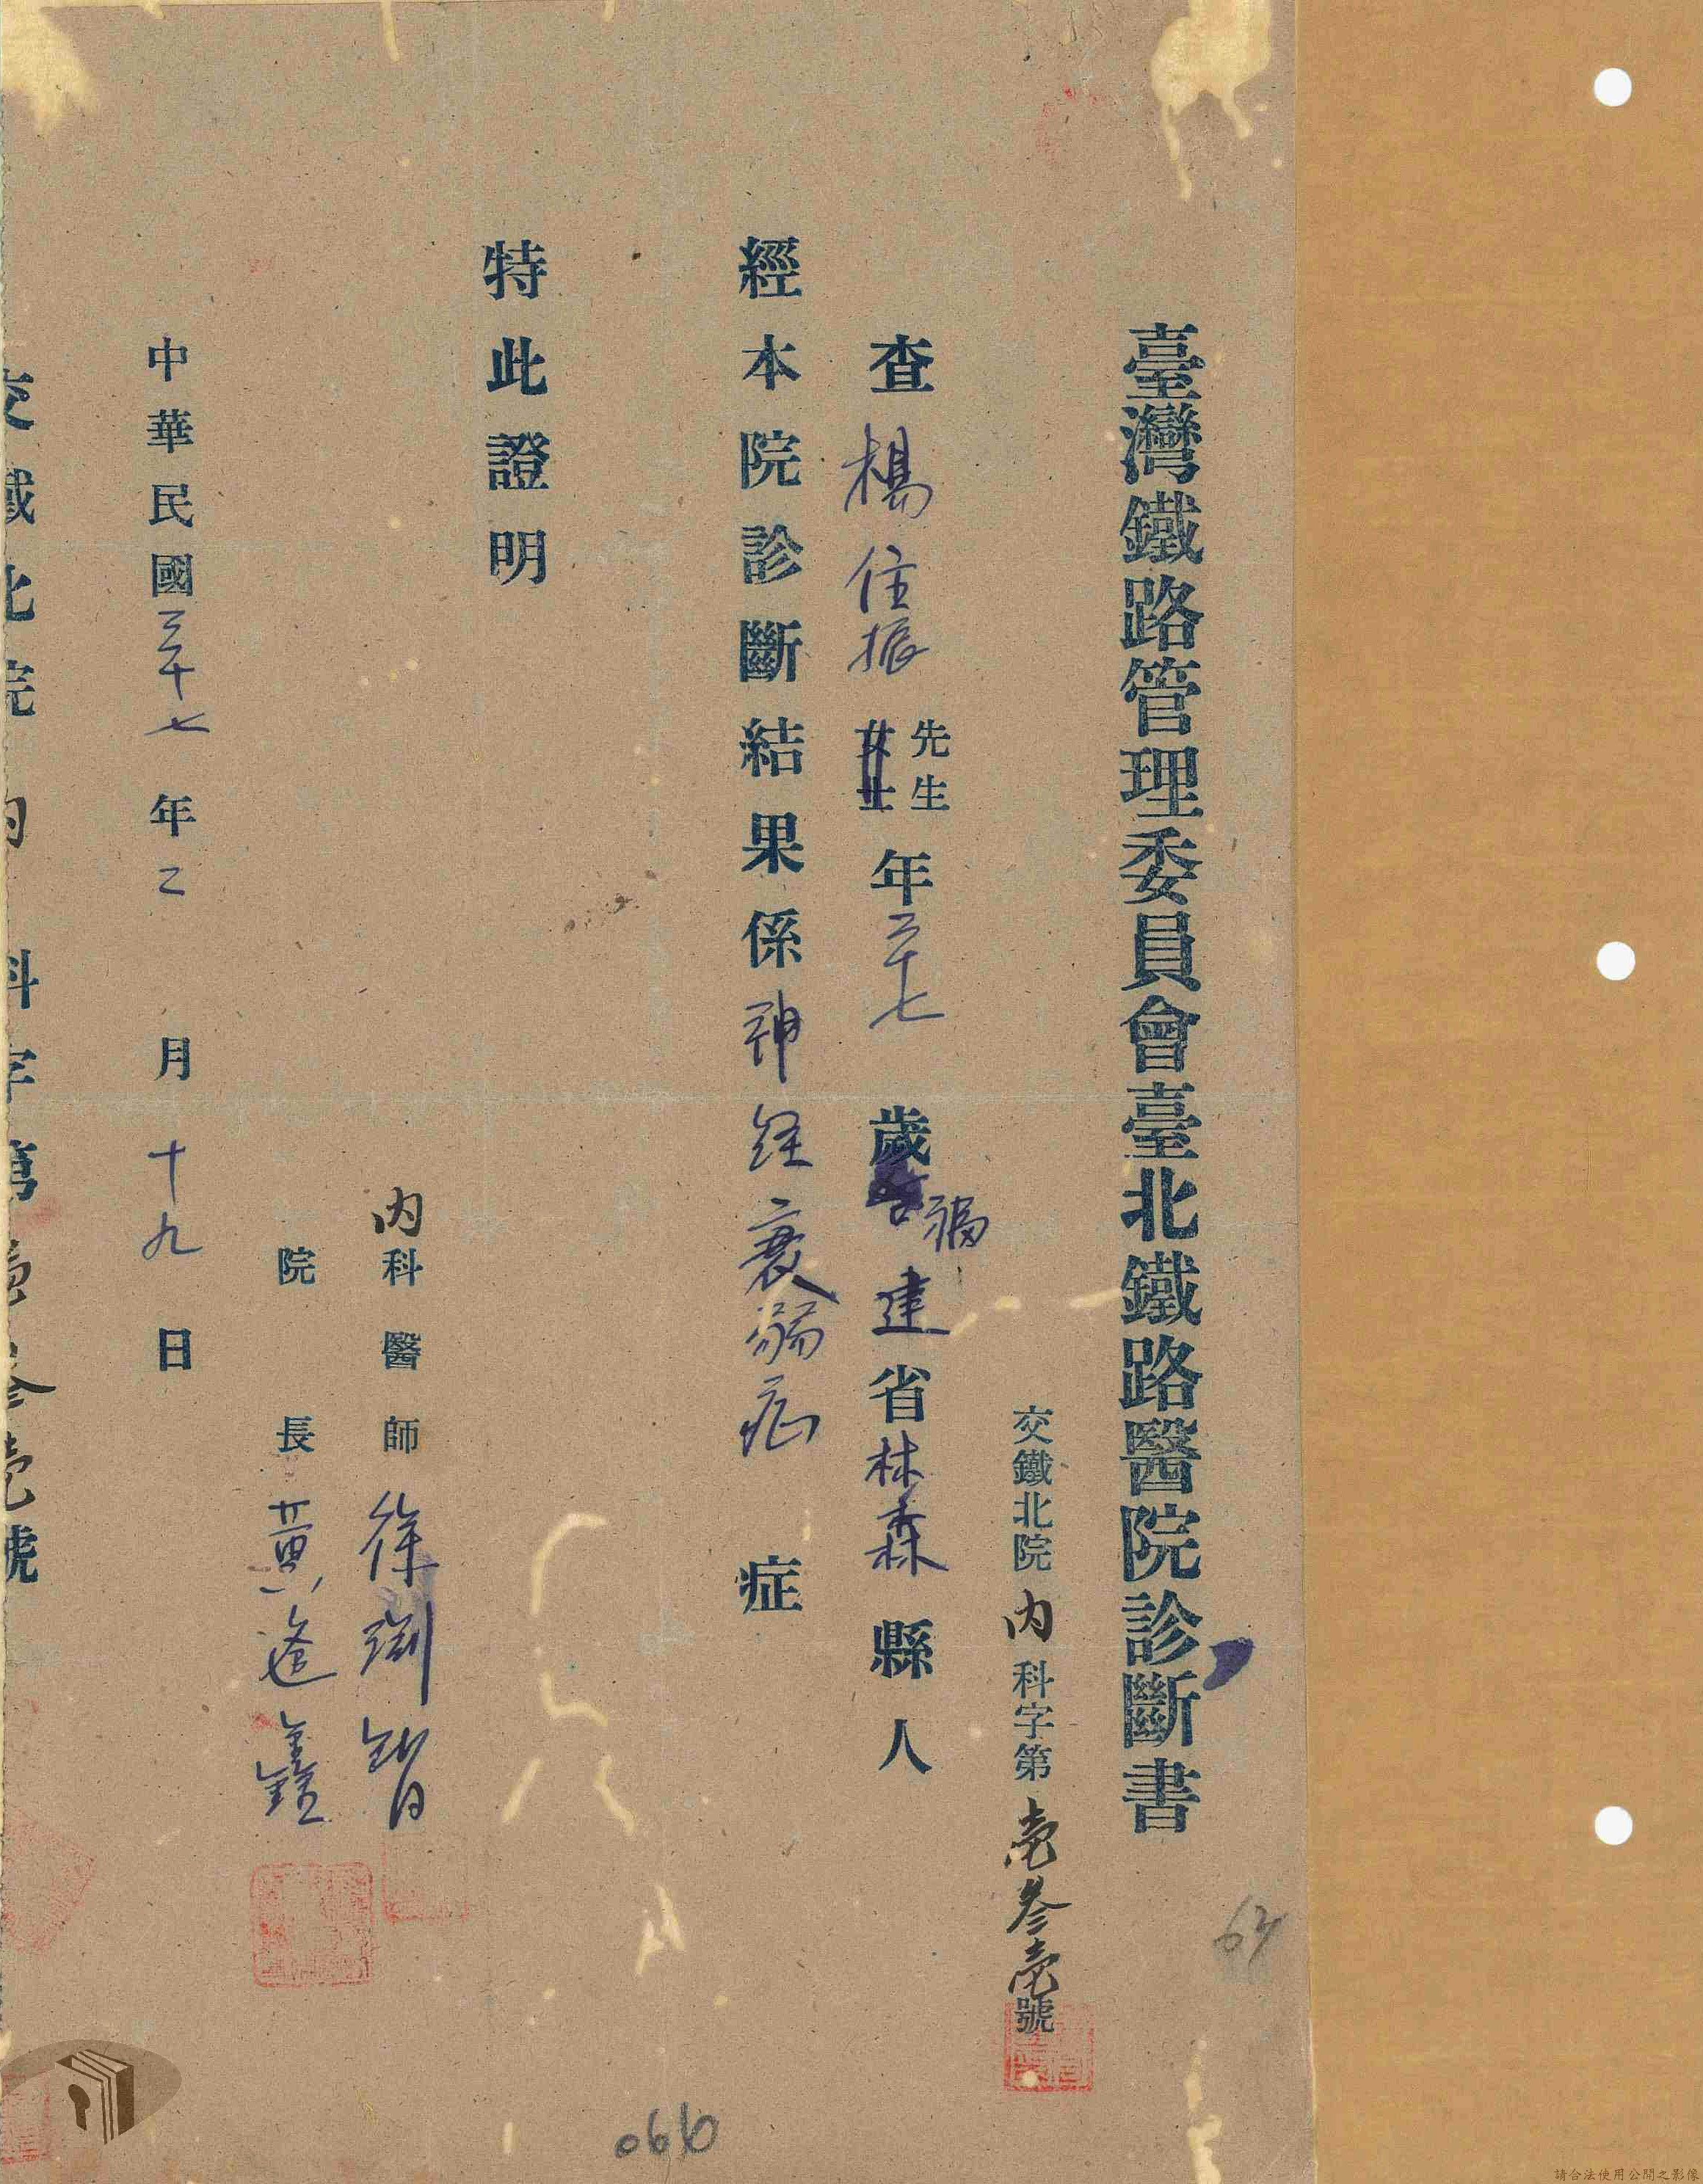 臺灣鐵路管理委員會臺北鐵路醫院診斷書
交鐵北院內科字第壹叁壹號
查楊住振先生女士年三十七歲福建省林森縣人
經本院診斷結果係神經衰弱症症
特此證明
內科醫師徐渊智
院長黃逢鑫
中華民國三十七年二月十九日
交鐵北院內科字第壹叁壹號
64
066
請合法使用公開之影像